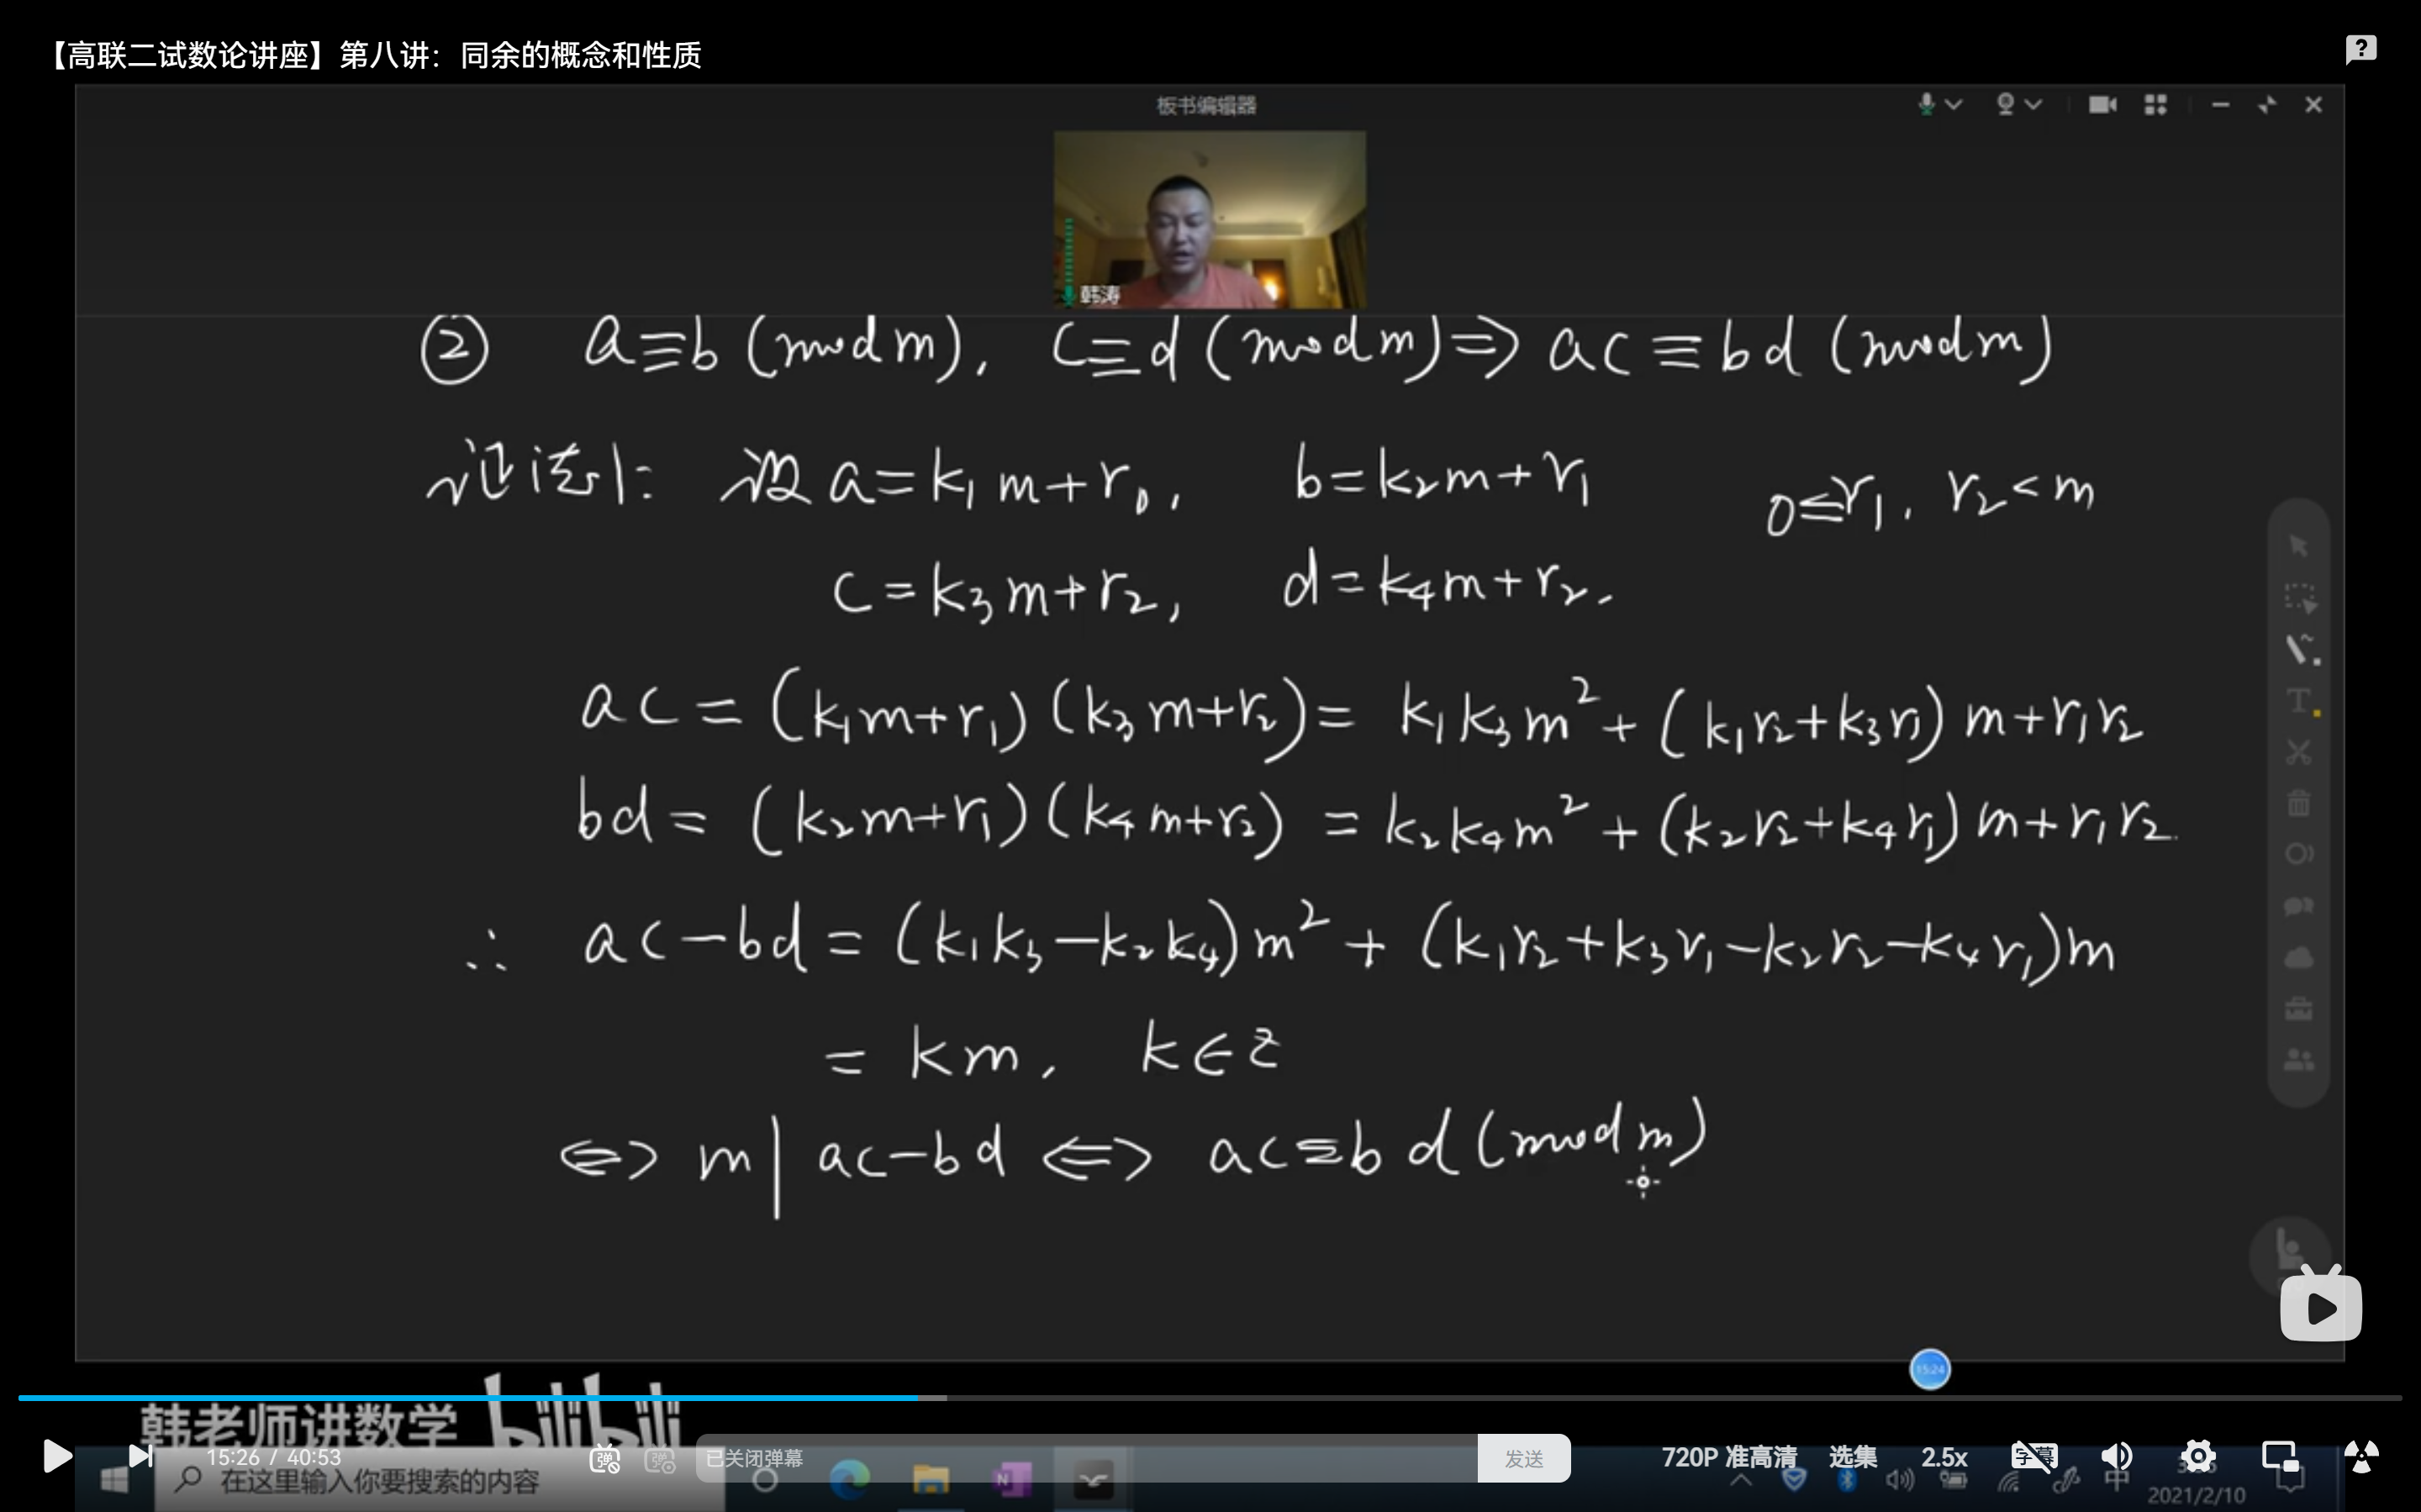 【高联二试数论讲座】第八讲：同余的概念和性质
板书编辑器
韩涛
② a≡b (mod m), c≡d (mod m) ⇒ ac≡bd (mod m)
证法1: 设 a=k₁m+r₁, b=k₂m+r₁ 0≤r₁, r₂<m
c=k₃m+r₂, d=k₄m+r₂.
ac=(k₁m+r₁)(k₃m+r₂)=k₁k₃m²+(k₁r₂+k₃r₁)m+r₁r₂
bd=(k₂m+r₁)(k₄m+r₂)=k₂k₄m²+(k₂r₂+k₄r₁)m+r₁r₂.
∴ ac-bd=(k₁k₃-k₂k₄)m²+(k₁r₂+k₃r₁-k₂r₂-k₄r₁)m
=km, k∈z
⇔ m|ac-bd ⇔ ac≡bd(mod m)
15:24
韩老师讲数学 bilibili
15:26 / 40:53 已关闭弹幕 发送 720P 准高清 选集 2.5x 字幕
在这里输入你要搜索的内容 中
2021/2/10